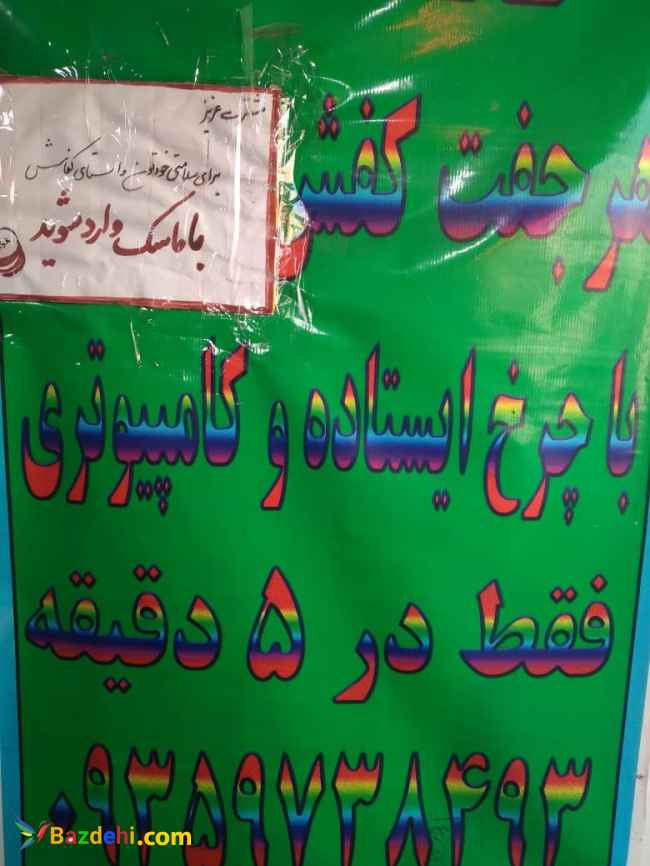 مشتری عزیز
برای سلامتی خودتون و استای کفاش
با ماسک وارد شوید
هر جفت کفش
با چرخ ایستاده و کامپیوتری
فقط در ۵ دقیقه
۰۹۳۵۹۷۳۸۴۹۳
Bazdehi.com